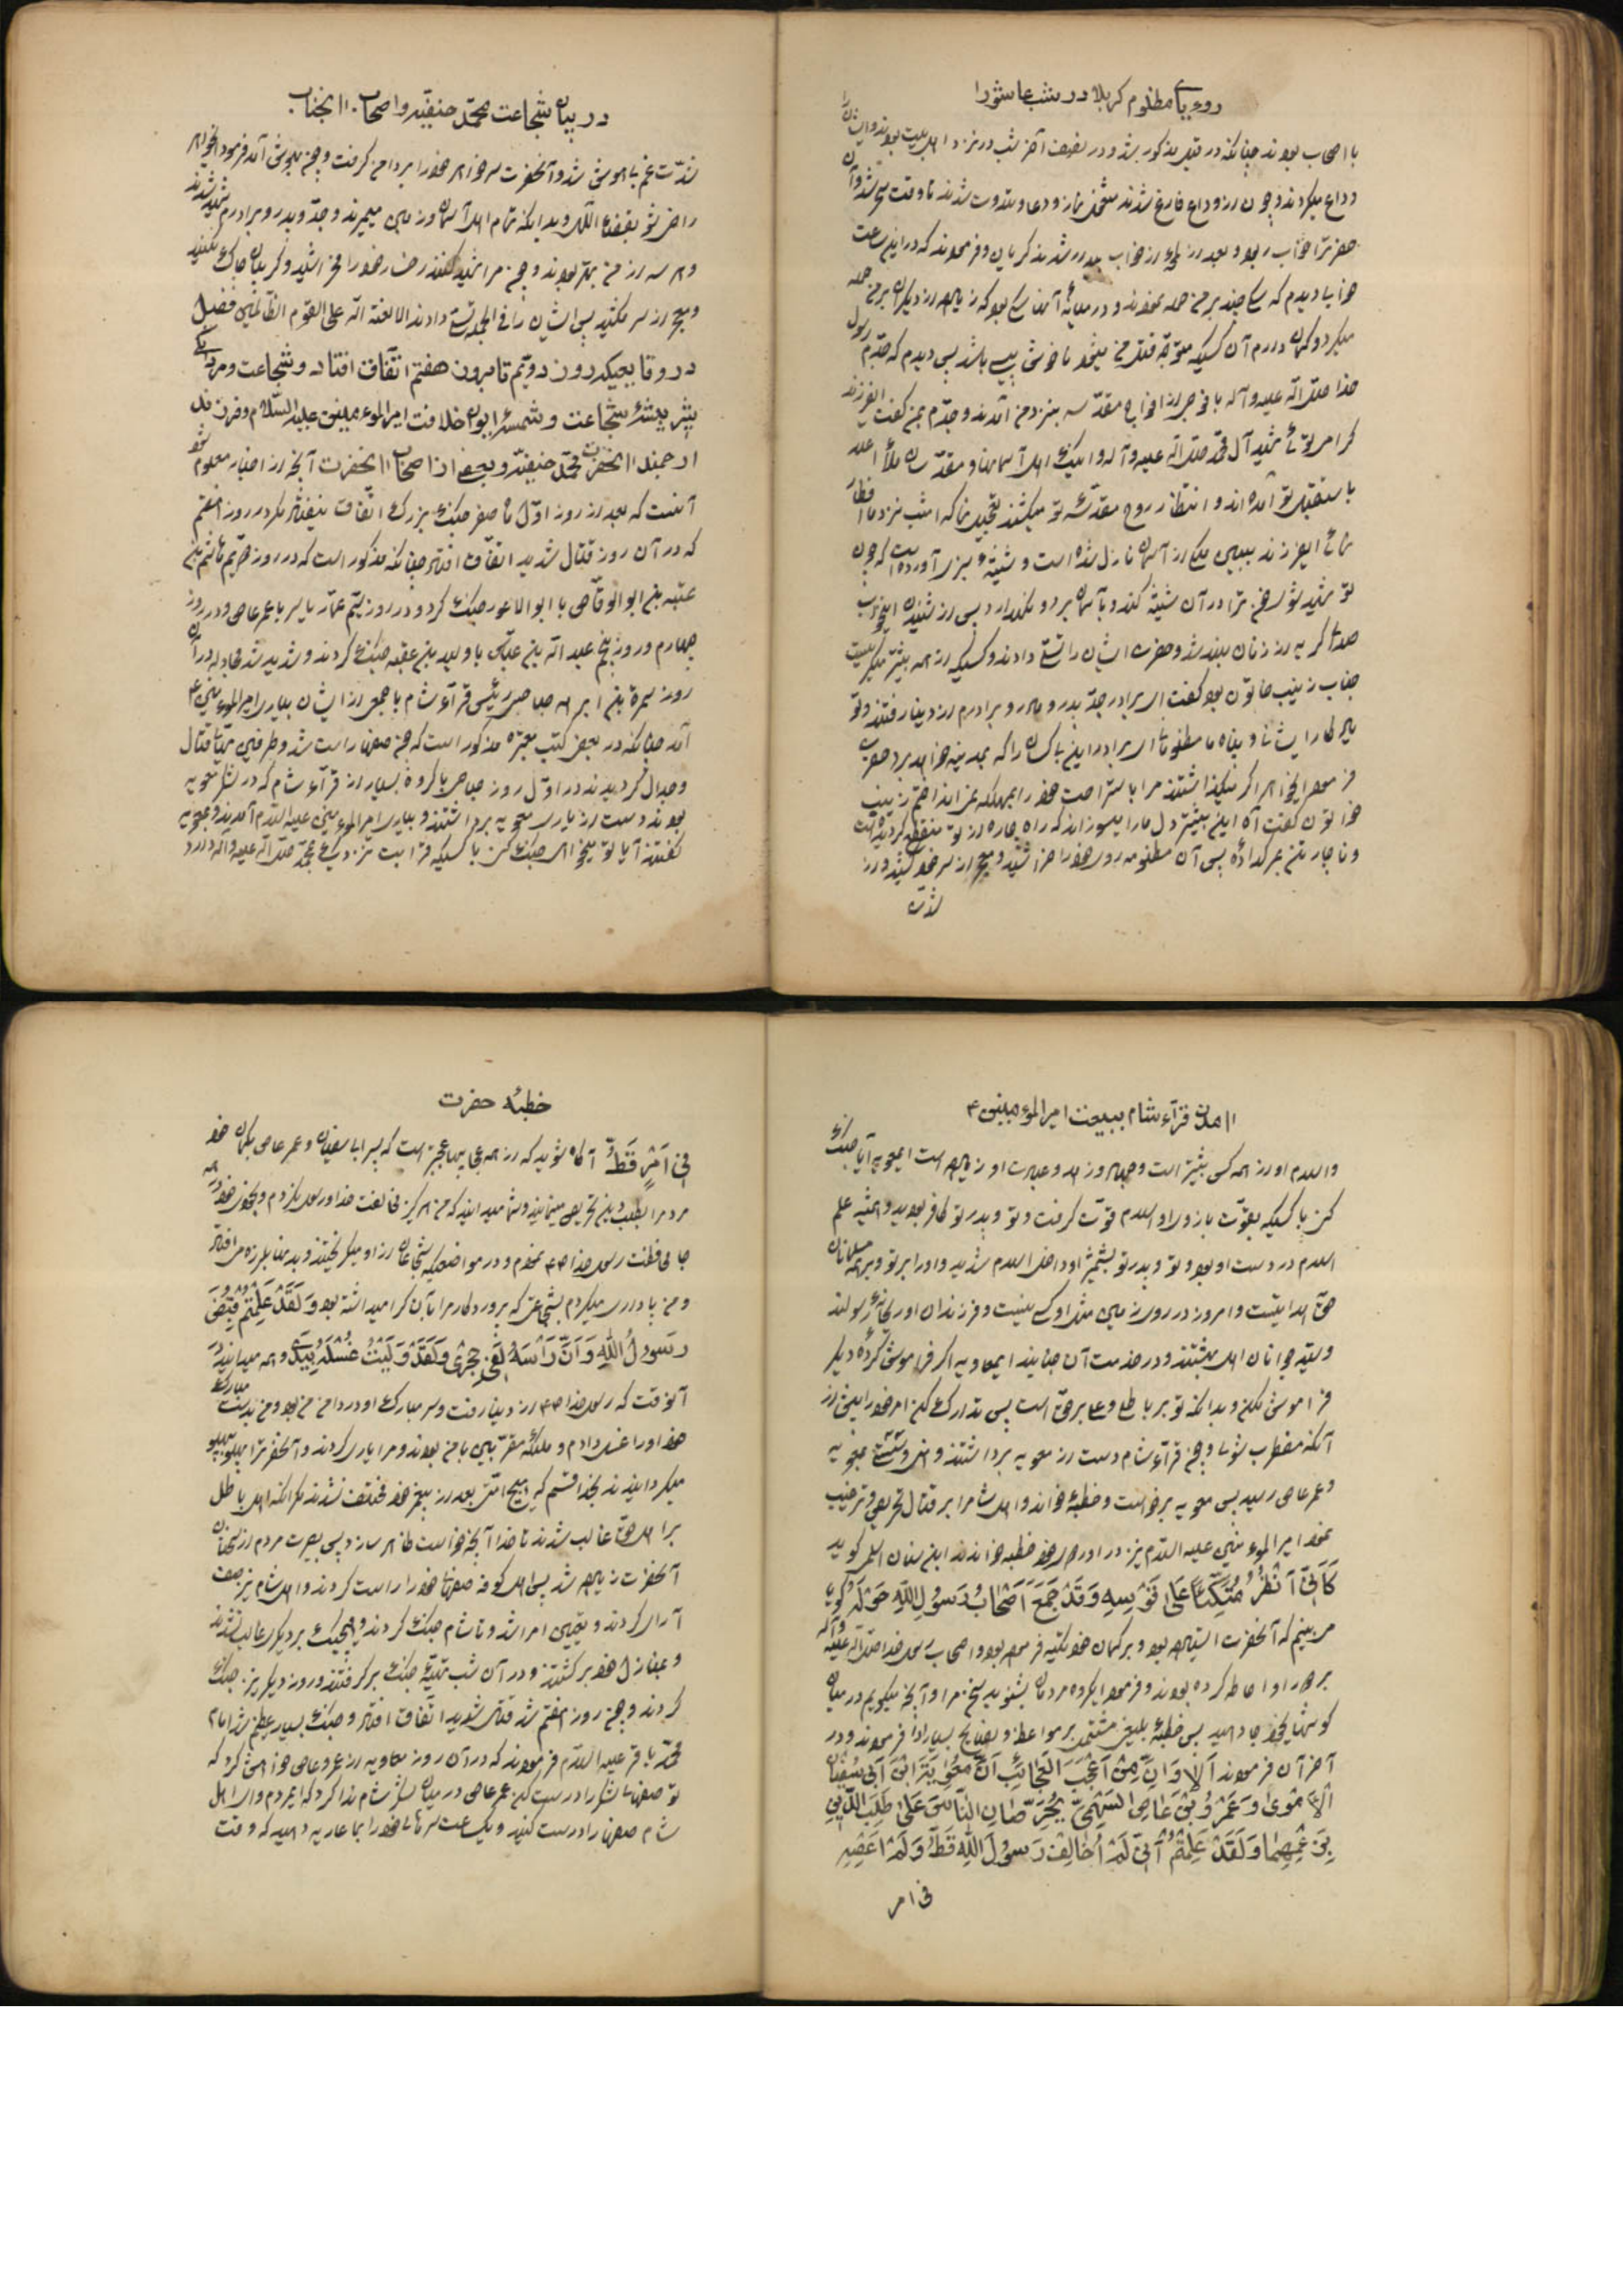 رویای مظلوم کربلا در شب عاشورا
با اصحاب بودند چنانکه در قبل مذکور شد و در نصف آخر شب در نزد اهلبیت بودند و ایشان را
وداع میکردند و چون از وداع فارغ شدند مشغول نماز و دعا و تلاوت شدند تا وقت سحر شد و آن
حضرت را خواب ربود و بعد از خواب بیدار شدند گریان و فرمودند که در این ساعت
خوابی دیدم که سگی چند بر من حمله نمودند و در میانه آنها سگی بود که زیاده از دیگران بر من حمله
میکرد و گمان دارم آن کسیکه متوجه قتل من میشود ناخوشی پیسی باشد پس دیدم که جدم رسول
خدا صلی الله علیه و آله با فوجی از ارواح مقدسه بنزد من آمدند و جدم بمن گفت ای فرزند
گرامی توئی شهید آل محمد صلی الله علیه و آله و اینک اهل آسمانها و مقدسان ملأ اعلی
باستقبال تو آمده‌اند و انتظار روح مقدسه تو میکشند تعجیل نما که امشب نزد ما افطار
نمائی ای فرزند ببین ملکی از آسمان نازل شده است و شیشه سبزی آورده است که چون
تو شهید شوی خون ترا در آن شیشه کند و بآسمان برد و نگهدارد پس از شنیدن این خواب
صدای گریه از زنان بلند شد و حضرت ایشان را تسلی دادند و کسیکه از همه بیشتر میگریست
جناب زینب خاتون بود گفت ای برادر جد و پدر و مادر و برادرم از دنیا رفتند و تو
یادگار ایشان و پناه ما مظلومانی ای برادر این بیکسان را که بمدینه خواهد برد حضرت
فرمود ای خواهر اگر میگذاشتند مرا باستراحت خود را بمهلکه نمی‌انداختم زینب
خواتون گفت آه این بیشتر دل ما را میسوزاند که راه چاره از تو منقطع گردیده است
و ناچار تن بمرگ داده پس آن مظلومه روی خود را خراشید و معجر از سر خود کشید و از
شدت
در بیان شجاعت محمد حنفیه و اصحاب آنجناب
شدت غم بیهوش شد و آنحضرت سر خواهر خود را بر دامن گرفت و چون بهوش آمد فرمود ای خواهر
راضی شو بقضای الهی و بدانکه تمام اهل آسمان و زمین میمیرند و جد و پدر و برادرم شهید شدند
و هر سه از من بهتر بودند و چون مرا شهید کنند رخسار خود را مخراشید و گریبان چاک مکنید
و معجر از سر مکشید پس ایشان را فی الجمله تسلی دادند الا لعنة الله علی القوم الظالمین فصل
در وقایعیکه روز دویم تا روز هفتم اتفاق افتاد و شجاعت و مردانگی
شیر بیشه شجاعت و شمسه ایوان خلافت امیر المؤمنین علیه السلام و فرزندان
ارجمند آنحضرت محمد حنفیه و بعضی از اصحاب آنحضرت آنچه از اخبار معلوم شود
آنست که بعد از روز اول ماه صفر جنگ بزرگی اتفاق نیفتاد مگر در روز هفتم
که در آن روز قتال شدید اتفاق افتاد چنانکه مذکور است که در روز دویم هاشم بن
عتبه بن ابو الوقاص با ابو الاعور جنگ کرد و در روز سیم عمار یاسر با عمرعاص و در روز
چهارم و روز پنجم عبد الله بن عباس با ولید بن عقبه جنگ کردند و شدید شد مجادله در آن
روز سمرة بن ابرهه صباحی رئیس قراء شام با جمعی از ایشان بیاری امیر المؤمنین ع
آمد چنانکه در بعض کتب معتبره مذکور است که چون صفها راست شد و طرفین مهیای قتال
و جدال گردیدند در اول روز صباحی با گروه بسیار از قراء شام که در لشکر معویه
بودند دست از یاری معویه برداشتند و بیاری امیر المؤمنین علیه السلام آمدند و بمعویه
گفتند آیا تو میخواهی جنگ کنی با کسیکه قرابت نزدیکی بمحمد صلی الله علیه و اله دارد
آمدن قراء شام ببیعت امیر المؤمنین ع
و اسلام او از همه کس بیشتر است و جهاد و زهد و عبادت او زیاده است ای معویه آیا جنگ
کنی با کسیکه بقوت بازوی او اسلام قوت گرفت و تو و پدر تو کافر بودید و همیشه علم
اسلام در دست او بود و تو و پدر تو بشمشیر او داخل اسلام شدید و او را بر تو و بر همه مسلمانان
حق هدایتست و امروز در روی زمین مثل او کسی نیست و فرزندان او ریحانه رسولند
و سید جوانان اهل بهشتند و در خدمت آن جنابند ای معاویه اگر فراموش کرده دیگر
فراموش مکن و بدانکه تو بر باطلی و علی بر حق است پس تدارک کن امر خود را پیش از
آنکه مضطرب شوی و چون قراء شام دست از معویه برداشتند و بمعویه
و عمر عاص رسید پس معویه برخواست و خطبه خواند و اهل شام را بر قتال تحریص و ترغیب
نمود امیر المؤمنین علیه السلام نیز در اردوی خود خطبه خواندند ابن سنان اسلمی گوید
كَاَنّى اَنْظُرُ مُتَّكِئاً عَلى قَوْسِهِ وَقَدْ جَمَعَ اَصْحابُ رَسُولِ اللّٰهِ حَوْلَهُ گویا
می‌بینم که آنحضرت ایستاده بود و بر کمان خود تکیه فرموده بود و اصحاب رسول خدا صلی الله علیه و آله
بر دور او احاطه کرده بودند و فرمود ای گروه مردمان بشنوید سخن مرا و آنچه میگویم در میان
گوشهای خود جا دهید پس خطبه بلیغی مشتمل بر مواعظ و نصایح بسیار ادا فرمودند و در
آخر آن فرمودند اَلا وَاِنَّ مِنْ اَعْجَبِ الْعَجائِبِ اَنَّ مُعٰوِيَةَ بْنَ اَبى سُفْيانَ
الْاُمَوِىَّ وَعَمْرَو بْنَ عاصِ السَّهْمِىَّ يُحَرِّضانِ النّاسَ عَلى طَلَبِ الدّينِ
بِزَعْمِهِما وَلَقَدْ عَلِمْتُمْ اَنّى لَمْ اُخالِفْ رَسُولَ اللّٰهِ قَطُّ وَلَمْ اَعْصِهِ
فی امر
خطبه حضرت
فى اَمْرٍ قَطُّ آگاه شوید که از همه عجایبها عجیبتر است که پسر ابا سفیان و عمر عاص بگمان خود
مردم را بطلب دین تحریص مینمایند و شما میدانید که من هرگز مخالفت خدا و رسول نکردم و بجان خود در همه
جا محافظت رسول خدا ص نمودم و در مواضعیکه شجاعان از او میگریختند و بدنها بلرزه می‌افتاد
و من یاوری میکردم بشجاعتی که پروردگار مرا بآن گرامی داشته بود وَلَقَدْ عَلِمْتُمْ قُبِضَ
رَسُولُ اللّٰهِ وَاَنَّ رَأْسَهُ لَفى حِجْرى وَلَقَدْ وَلَّيْتُ غُسْلَهُ بِيَدى و همه میدانید
آنوقت که رسول خدا ص از دنیا رفت و سر مبارک او در دامن من بود و من بدست مبارک
خود او را غسل دادم و ملئکه مقربین با من بودند و مرا یاری کردند و آنحضرترا پهلو بپهلو
میگردانیدند بخدا قسم که هیچ امتی بعد از پیغمبر خود مختلف نشدند مگر آنکه اهل باطل
بر اهل حق غالب شدند تا خدا آنچه خواست ظاهر سازد پس بصیرت مردم از سخنان
آنحضرت زیاده شد پس اهل کوفه صفهای خود را راست کردند و اهل شام نیز صف
آرائی کردند و تا شام جنگ کردند و هیچیک بر دیگری غالب نشدند
و بمنازل خود برگشتند و در آن شب تهیه جنگ برگرفتند و روز دیگر نیز جنگ
کردند و چون روز هفتم شد قتال شدید اتفاق افتاد و جنگ بسیار عظیم شد امام
محمد باقر علیه السلام فرمودند که در آن روز معاویه از عمرو عاص خواهش کرد که
تو صفهای لشکر را درست کن عمر عاص در میان لشکر شام ندا کرد که ای مردم و ای اهل
شام صفها را درست کنید و یک ساعت سرهای خود را بما عاریه دهید که وقت